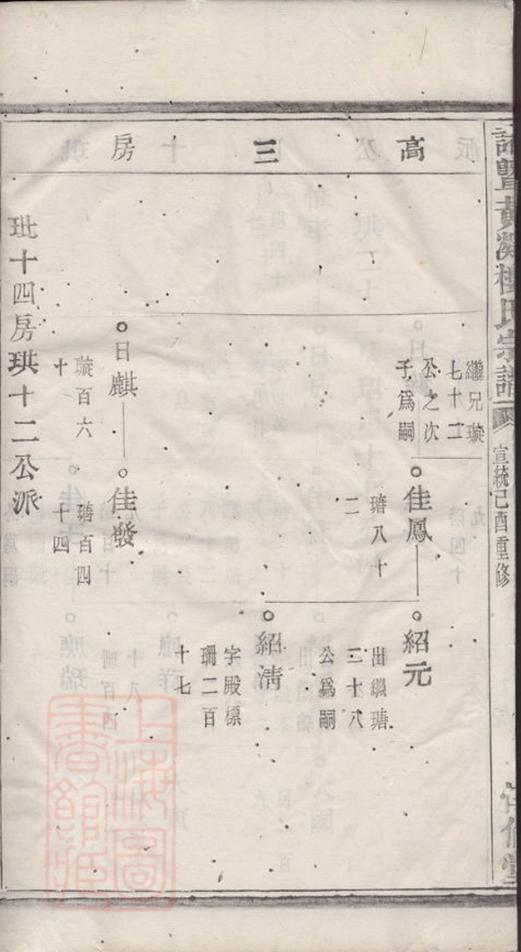 暨黃
樓氏宗譜
宣統己酉重修
高三房
繼兄璇
七十二
公之次
子爲嗣
佳鳳
瑭八十
二
紹元
出繼瑭
三十八
公爲嗣
紹清
字殿標
珊二百
十七
日麒
璇百六
十
佳發
瑭百四
十四
玭十四房珙十二公派
上海圖書館藏